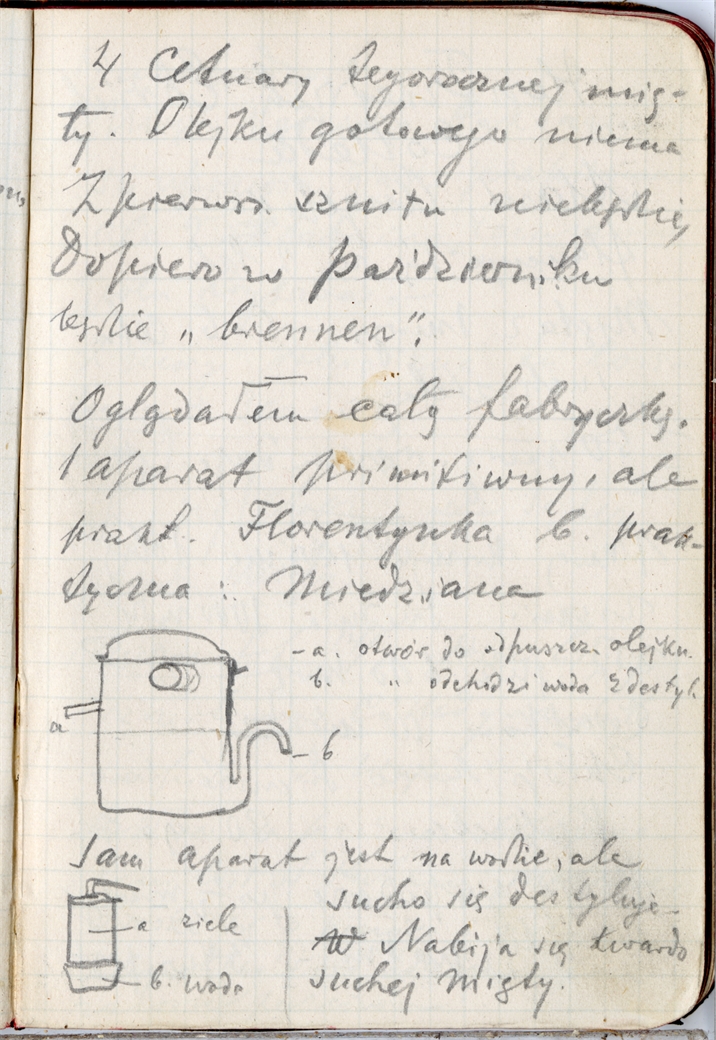 4 Cetnary tegorocznej mię-
ty. Olejku gotowego niema
Z pierwsz. sznitu nie będzie,
Dopiero w październiku
będzie „brennen".
Oglądałem całą fabryczkę.
1 aparat primitiwny, ale
prakt. Florentynka b. prak-
tyczna: Miedziana
- a. otwór do odpuszcz. olejku.
b. " odchodzi woda z destyl.
a
- b
Sam aparat jest na wodzie, ale
sucho się destyluje
a ziele
W Nabija się twardo
b. woda
suchej mięty.